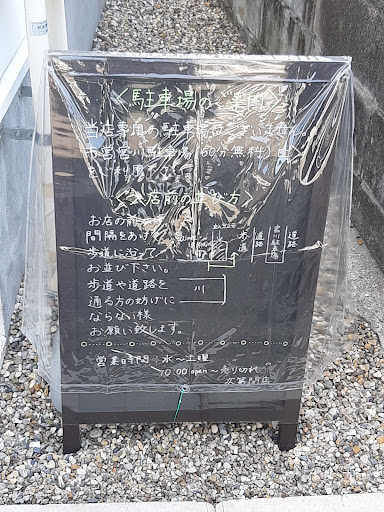 〈駐車場のご案内〉
当店専用の駐車場はございません。
市営宮川駐車場(60分無料)
をご利用下さい。
〈入店前の並び方〉
お店の前
間隔をあけ
歩道に沿って
お並び下さい。
歩道や道路を
通る方の妨げに
ならない様
お願い致します。
歩道
道路
宮川駐車場
道路
川
営業時間:水〜土曜
10:00 open〜売り切れ
次第閉店